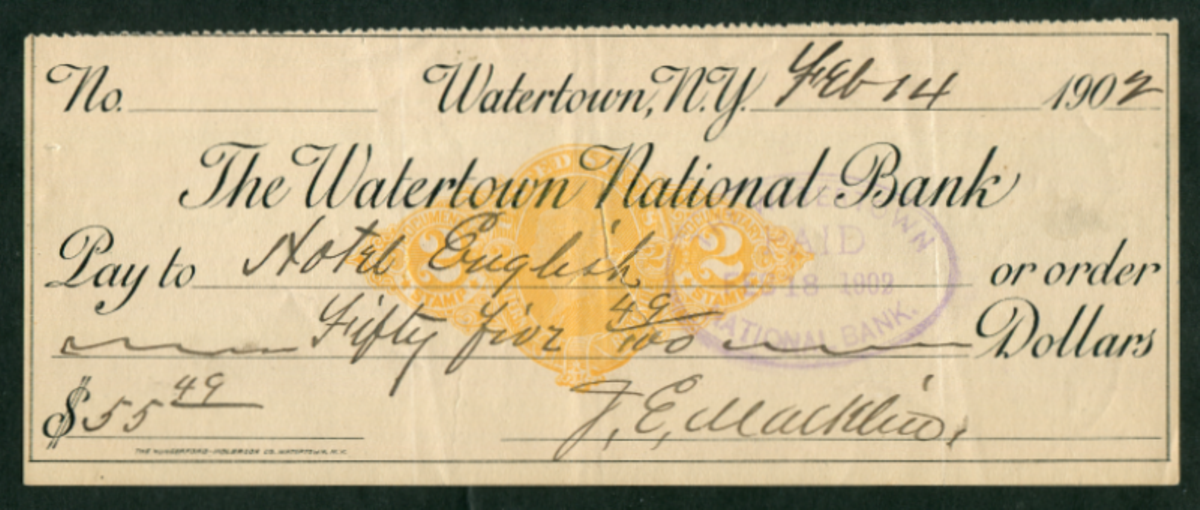 No. Watertown, N.Y. Feb 14 1902
The Watertown National Bank
Pay to Hotel English or order
Fifty five 49/100 Dollars
$55 49 J. E. Macklin.
THE HUNGERFORD-HOLBROOK CO. WATERTOWN, N.Y.
DOCUMENTARY 2 STAMP
DOCUMENTARY 2 STAMP
WATERTOWN
PAID
FEB 18 1902
NATIONAL BANK.